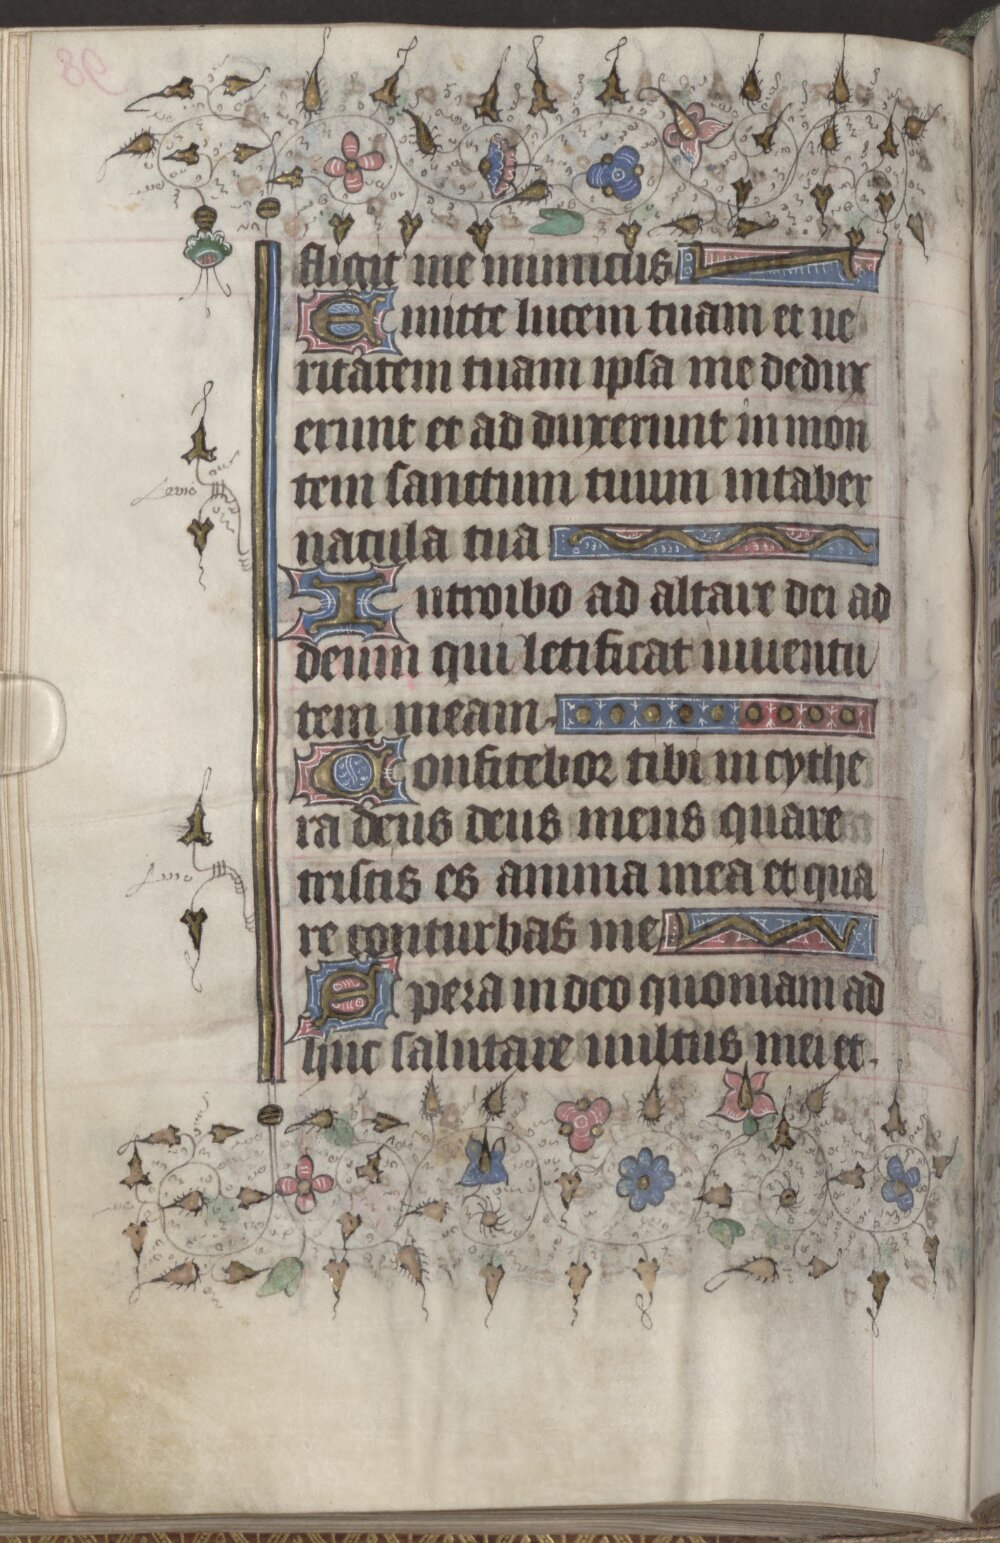 fligit me inimicus
Emitte lucem tuam et ue
ritatem tuam ipsa me dedux
erunt et ad duxerunt in mon
tem sanctum tuum in taber
nacula tua
Introibo ad altare dei ad
deum qui letificat iuuentu
tem meam.
Confitebor tibi in cythe
ra deus deus meus quare
tristis es anima mea et qua
re conturbas me
Spera in deo quoniam ad
huc salutare uultus mei et.